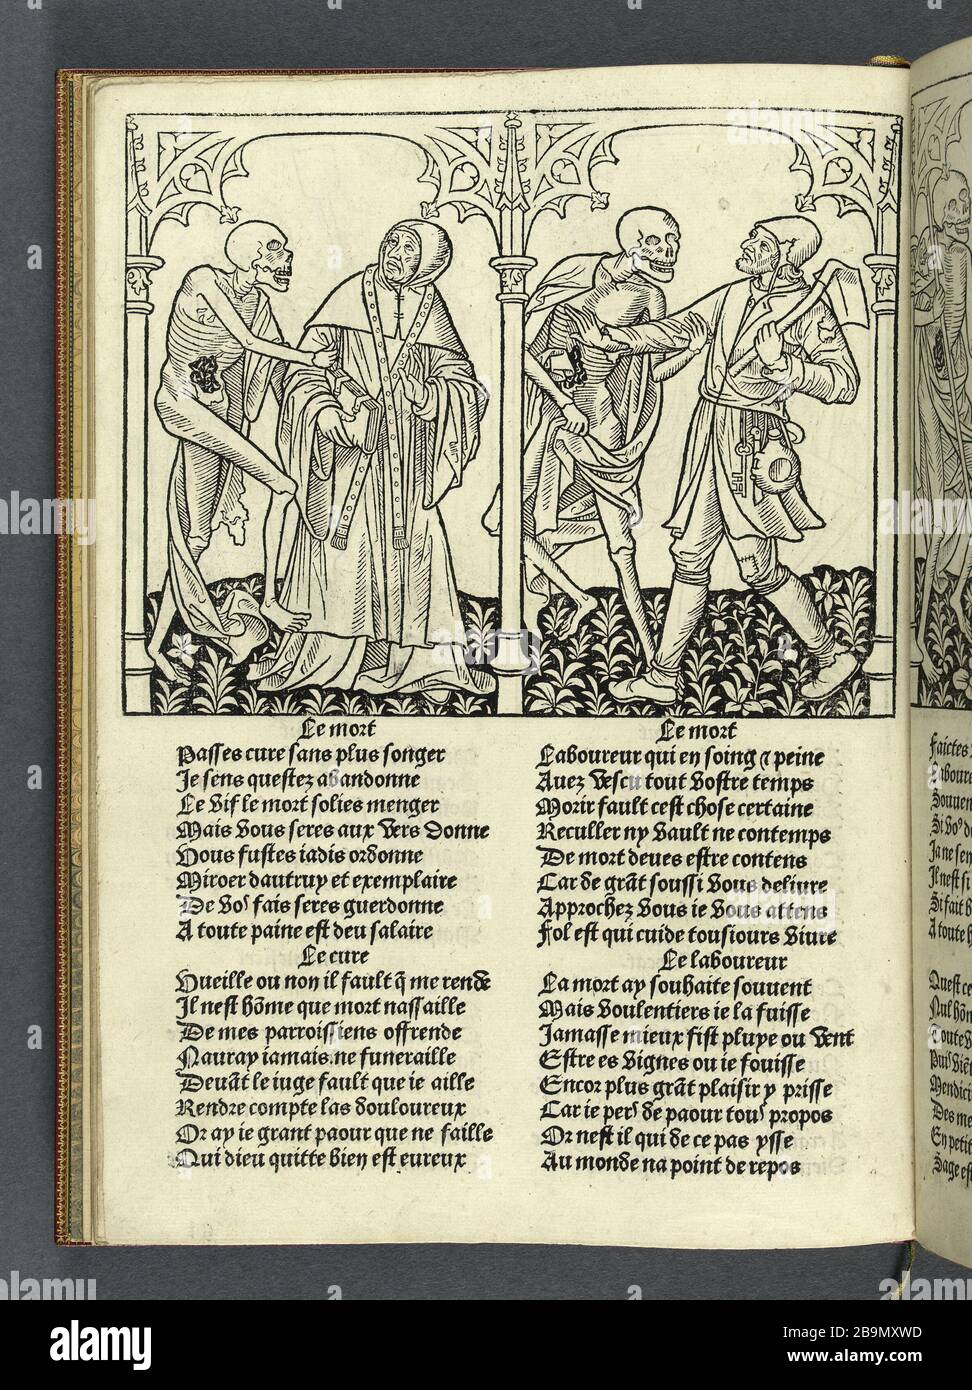 Le mort
Passes cure sans plus songer
Je sens questez abandonne
Le vif le mort solies menger
Mais vous seres aux vers donne
Vous fustes iadis ordonne
Miroer dautruy et exemplaire
De voꝰ fais seres guerdonne
A toute paine est deu salaire
Le cure
Vueille ou non il fault q̃ me rende
Il nest hõme que mort nassaille
De mes parroissiens offrende
Nauray iamais ne funeraille
Deuãt le iuge fault que ie aille
Rendre compte las douloureux
Or ay ie grant paour que ne faille
Qui dieu quitte bien est eureux
Le mort
Laboureur qui en soing ⁊ peine
Auez vescu tout vostre temps
Morir fault cest chose certaine
Reculler ny vault ne contemps
De mort deues estre contens
Car de grãt soussi vous deliure
Approchez vous ie vous attens
Fol est qui cuide tousiours viure
Le laboureur
La mort ay souhaite souuent
Mais voulentiers ie la fuisse
Jamasse mieux fist pluye ou vent
Estre es vignes ou ie fouisse
Encor plus grãt plaisir y prisse
Car ie perꝰ de paour touꝰ propos
Or nest il qui de ce pas ysse
Au monde na point de repos
alamy
Image ID: 2B9MXWD
www.alamy.com